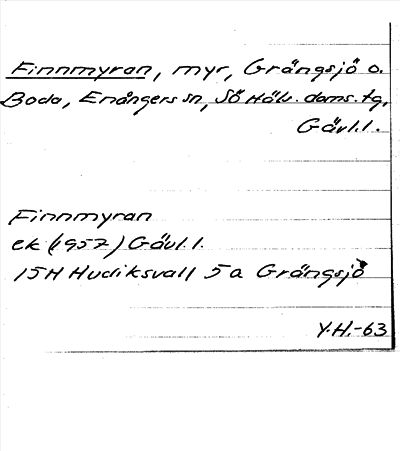 Finnmyran, myr, Grängsjö o.
Boda, Enångers sn, Sö Häls. doms. tg,
Gävl.l.
Finnmyran
ek (1957) Gävl.l.
15H Hudiksvall 5a Grängsjö
Y.H.-63